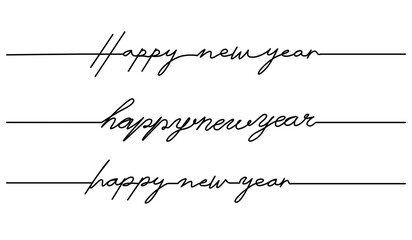 Happy new year
happy new year
happy new year